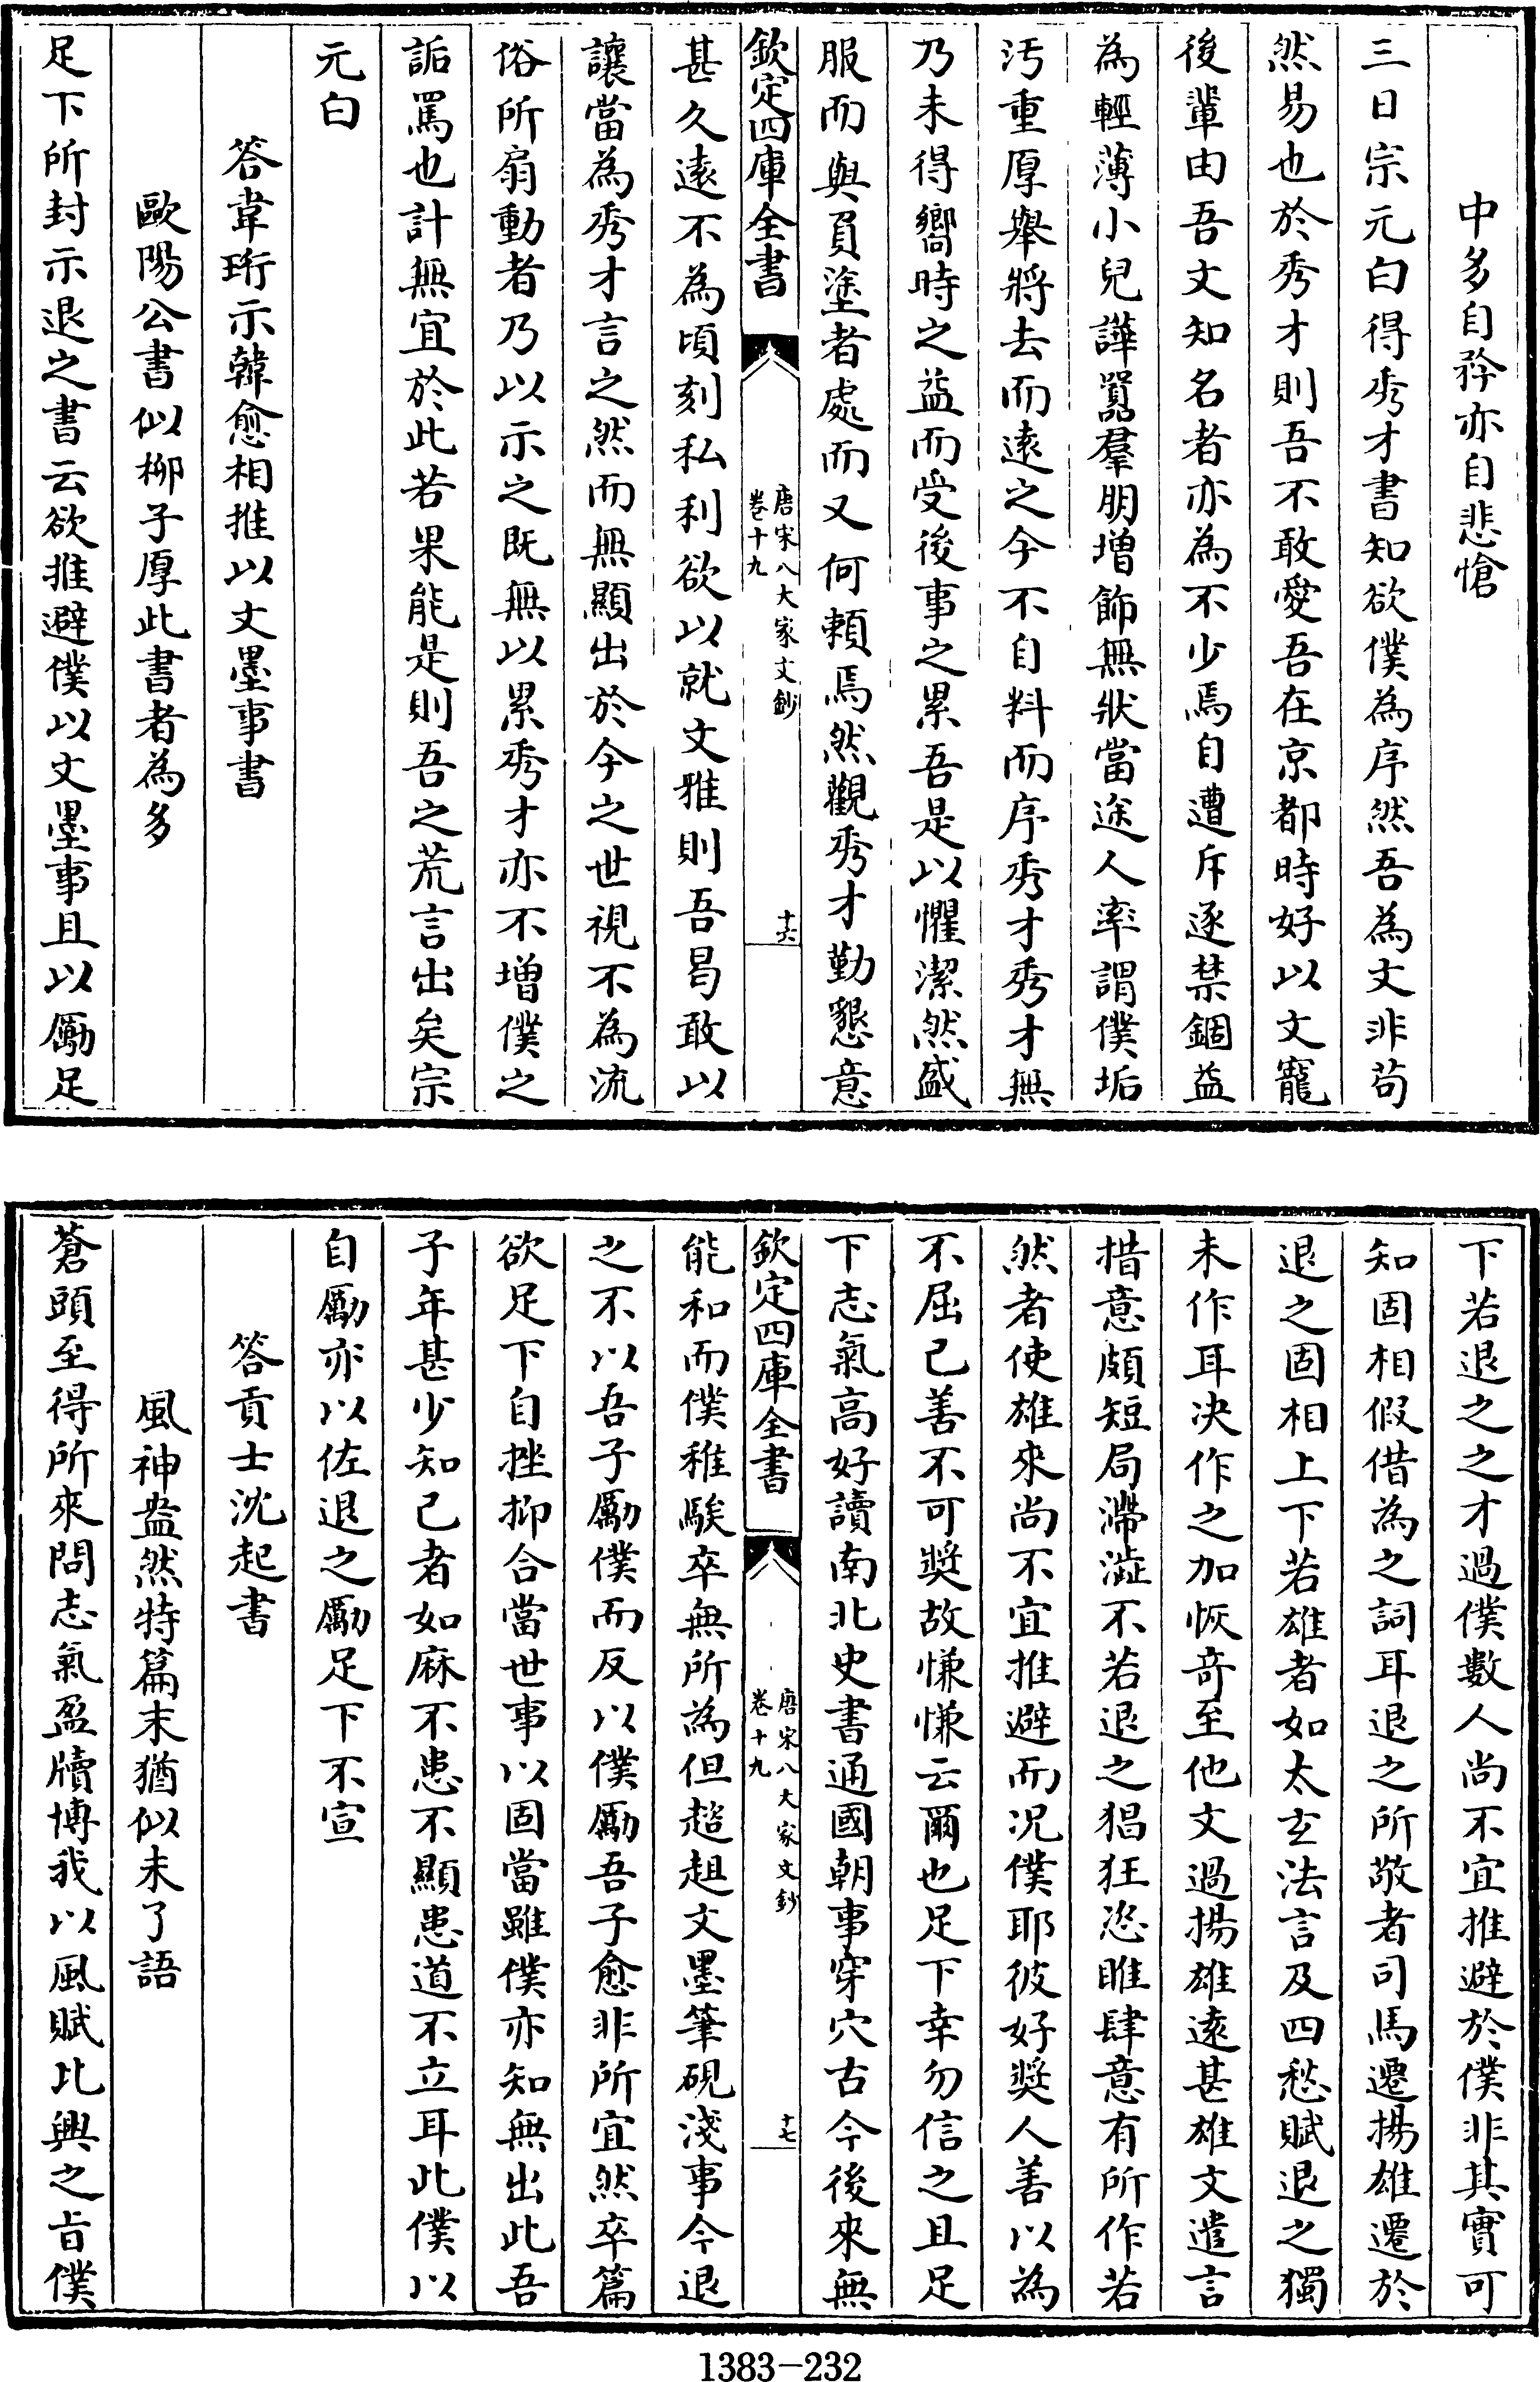 中多自矜亦自悲愴
三日宗元白得秀才書知欲僕為序然吾為文非苟
然易也於秀才則吾不敢愛吾在京都時好以文寵
後輩由吾文知名者亦為不少焉自遭斥逐禁錮益
為輕薄小兒譁囂羣朋增飾無狀當途人率謂僕垢
汚重厚舉將去而逺之今不自料而序秀才秀才無
乃未得嚮時之益而受後事之累吾是以懼潔然盛
服而與負塗者處而又何賴焉然觀秀才勤懇意
欽定四庫全書
唐宋八大家文鈔
卷十九
十六
甚久逺不為頃刻私利欲以就文雅則吾曷敢以
讓當為秀才言之然而無顯出於今之世視不為流
俗所扇動者乃以示之既無以累秀才亦不增僕之
詬罵也計無宜於此若果能是則吾之荒言出矣宗
元白
答韋珩示韓愈相推以文墨事書
歐陽公書似栁子厚此書者為多
足下所封示退之書云欲推避僕以文墨事且以勵足
下若退之之才過僕數人尚不宜推避於僕非其實可
知固相假借為之詞耳退之所敬者司馬遷揚雄遷於
退之固相上下若雄者如太玄法言及四愁賦退之獨
未作耳决作之加恢竒至他文過揚雄逺甚雄文遣言
措意頗短局滯澁不若退之猖狂恣睢肆意有所作若
然者使雄來尚不宜推避而况僕耶彼好奬人善以為
不屈已善不可奬故慊慊云爾也足下幸勿信之且足
下志氣高好讀南北史書通國朝事穿穴古今後來無
欽定四庫全書
唐宋八大家文鈔
卷十九
十七
能和而僕稚騃卒無所為但趦趄文墨筆硯淺事今退
之不以吾子勵僕而反以僕勵吾子愈非所宜然卒篇
欲足下自挫抑合當世事以固當雖僕亦知無出此吾
子年甚少知已者如麻不患不顯患道不立耳此僕以
自勵亦以佐退之勵足下不宣
答貢士沈起書
風神盎然特篇末猶似未了語
蒼頭至得所來問志氣盈牘博我以風賦比興之㫖僕
1383-232